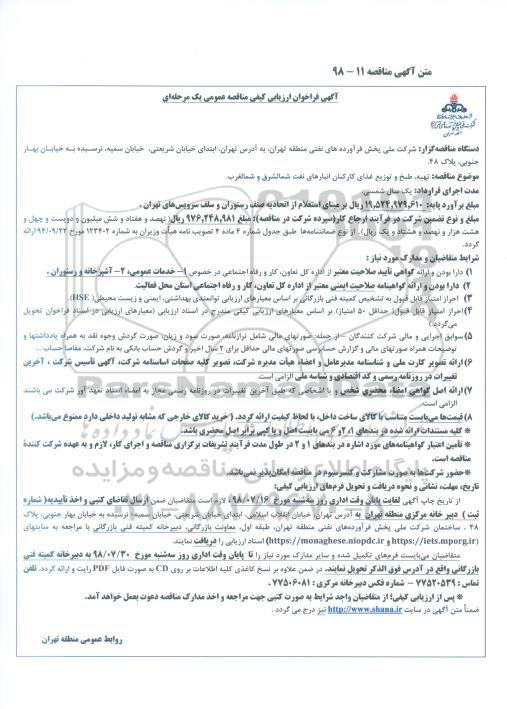 متن آگهی مناقصه ۱۱ – ۹۸
آگهی فراخوان ارزیابی کیفی مناقصه عمومی یک مرحله‌ای
دستگاه مناقصه‌گزار: شرکت ملی پخش فرآورده های نفتی منطقه تهران، به آدرس تهران، ابتدای خیابان شریعتی، خیابان سمیه، نرسیده به خیابان بهار
جنوبی، پلاک ۴۸.
موضوع مناقصه: تهیه، طبخ و توزیع غذای کارکنان انبارهای نفت شمالشرق و شمالغرب.
مدت اجرای قرارداد: یک سال شمسی
مبلغ برآورد پایه: ۱۹,۵۲۴,۹۷۹,۶۱۰ ریال بر مبنای استعلام از اتحادیه صنف رستوران و سلف سرویس‌های تهران.
مبلغ و نوع تضمین شرکت در فرآیند ارجاع کار(سپرده شرکت در مناقصه): مبلغ ۹۷۶,۲۴۸,۹۸۱ ریال( نهصد و هفتاد و شش میلیون و دویست و چهل و
هشت هزار و نهصد و هشتاد و یک ریال). از نوع ضمانتنامه‌ها طبق جدول شماره ۴ ماده ۴ تصویب نامه هیأت وزیران به شماره ۱۲۳۴۰۲ مورخ ۹۴/۰۹/۲۲ ارائه
گردد.
شرایط متقاضیان و مدارک مورد نیاز :
۱) دارا بودن و ارائه گواهی تأیید صلاحیت معتبر از اداره کل تعاون، کار و رفاه اجتماعی در خصوص ۱- خدمات عمومی، ۲- آشپزخانه و رستوران .
۲) دارا بودن و ارائه گواهینامه صلاحیت ایمنی معتبر از اداره کل تعاون، کار و رفاه اجتماعی استان محل فعالیت.
۳) احراز امتیاز قابل قبول به تشخیص کمیته فنی بازرگانی بر اساس معیارهای ارزیابی توانمندی بهداشتی، ایمنی و زیست محیطی( HSE).
۴) احراز امتیاز قابل قبول( حداقل ۵۰ امتیاز) بر اساس معیارهای ارزیابی کیفی مندرج در اسناد ارزیابی (معیارهای ارزیابی در اسناد فراخوان تحویل
می‌گردد.)
۵) سوابق اجرایی و مالی شرکت کنندگان – از جمله: صورتهای مالی شامل ترازنامه، صورت سود و زیان، صورت گردش وجوه نقد به همراه یادداشتها و
توضیحات همراه صورتهای مالی و گزارش حسابرسی صورتهای مالی حداقل برای ۲ سال اخیر و گردش حساب بانکی به نام شرکت، مفاصا حساب ...
۶) ارائه تصویر کارت ملی و شناسنامه مدیرعامل و اعضاء هیأت مدیره شرکت، تصویر کلیه صفحات اساسنامه شرکت، آگهی تأسیس شرکت ، آخرین
تغییرات در روزنامه رسمی و کد اقتصادی و شناسه ملی الزامی است.
۷) ارائه اصل گواهی امضاء محضری شخص و یا اشخاصی که طبق آخرین تغییرات در روزنامه رسمی مجاز به امضاء اسناد تعهد آور شرکت می باشند
الزامی است.
۸) قیمت‌ها می‌بایست متناسب با کالای ساخت داخل، با لحاظ کیفیت ارائه گردد. ( خرید کالای خارجی که مشابه تولید داخلی دارد ممنوع می‌باشد.)
* کلیه مستندات ارائه شده در بندهای ۱، ۲ و ۶ می بایست اصل و یا کپی برابر اصل محضری باشد.
* تأمین اعتبار گواهینامه‌های مورد اشاره در بندهای ۱ و ۲ در طول مدت فرآیند تشریفات برگزاری مناقصه و اجرای کار، لازم و به عهده شرکت کننده
مناقصه است.
*حضور شرکت‌ها به صورت مشارکت و کنسرسیوم در مناقصه امکان‌پذیر نمی‌باشد.
تاریخ، مهلت، نشانی و نحوه دریافت و تحویل فرم‌های ارزیابی کیفی:
از تاریخ چاپ آگهی لغایت پایان وقت اداری روز سه‌شنبه مورخ ۹۸/۰۷/۱۶، لازم است متقاضیان ضمن ارسال تقاضای کتبی و اخذ تأییدیه( شماره
ثبت ) دبیر خانه مرکزی منطقه تهران به آدرس تهران، خیابان انقلاب اسلامی، ابتدای خیابان شریعتی، خیابان سمیه، نرسیده به خیابان بهار جنوبی، پلاک
۴۸ ، ساختمان شرکت ملی پخش فرآورده‌های نفتی منطقه تهران، طبقه اول، معاونت بازرگانی، دبیرخانه کمیته فنی بازرگانی با مراجعه به سایتهای
(https://iets.mporg.ir و https://monaghese.niopdc.ir) اسناد ارزیابی را دریافت نمایند.
متقاضیان می‌بایست فرم‌های تکمیل شده و سایر مدارک مورد نیاز را تا پایان وقت اداری روز سه‌شنبه مورخ ۹۸/۰۷/۳۰ به دبیرخانه کمیته فنی
بازرگانی واقع در آدرس فوق الذکر تحویل نمایند. در ضمن علاوه بر نسخ کاغذی کلیه اطلاعات بر روی CD به صورت فایل PDF رایت و ارائه گردد. تلفن
تماس : ۷۷۵۲۰۵۳۹ – شماره فکس دبیرخانه مرکزی : ۷۷۵۰۶۰۸۱
* پس از ارزیابی کیفی؛ از متقاضیان واجد شرایط به صورت کتبی جهت مراجعه و اخذ مدارک مناقصه دعوت بعمل خواهد آمد.
ضمناً متن آگهی در سایت http://www.shana.ir نیز درج می گردد.
روابط عمومی منطقه تهران